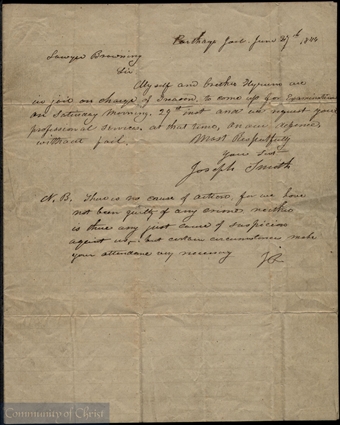 Carthage Jail, June 27th, 1844
Lawyer Browning
Sir
Myself and brother Hyrum are
in jail on charge of Treason, to come up for examination
on Saturday morning, 29th inst and we request your
professional services at that time, on our defence
without fail.
Most Respectfully
Your Servt
Joseph Smith
N.B. There is no cause of action, for we have
not been guilty of any crime; neither
is there any just cause of suspicion
against us; but certain circumstances make
your attendance very necessary
J S
Community of Christ